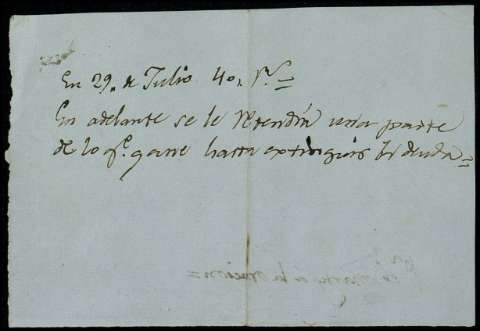 En 29. de Julio 40,, r.s =
En adelante se le retendrá una parte
de lo q.e gane hasta extinguir la deuda =